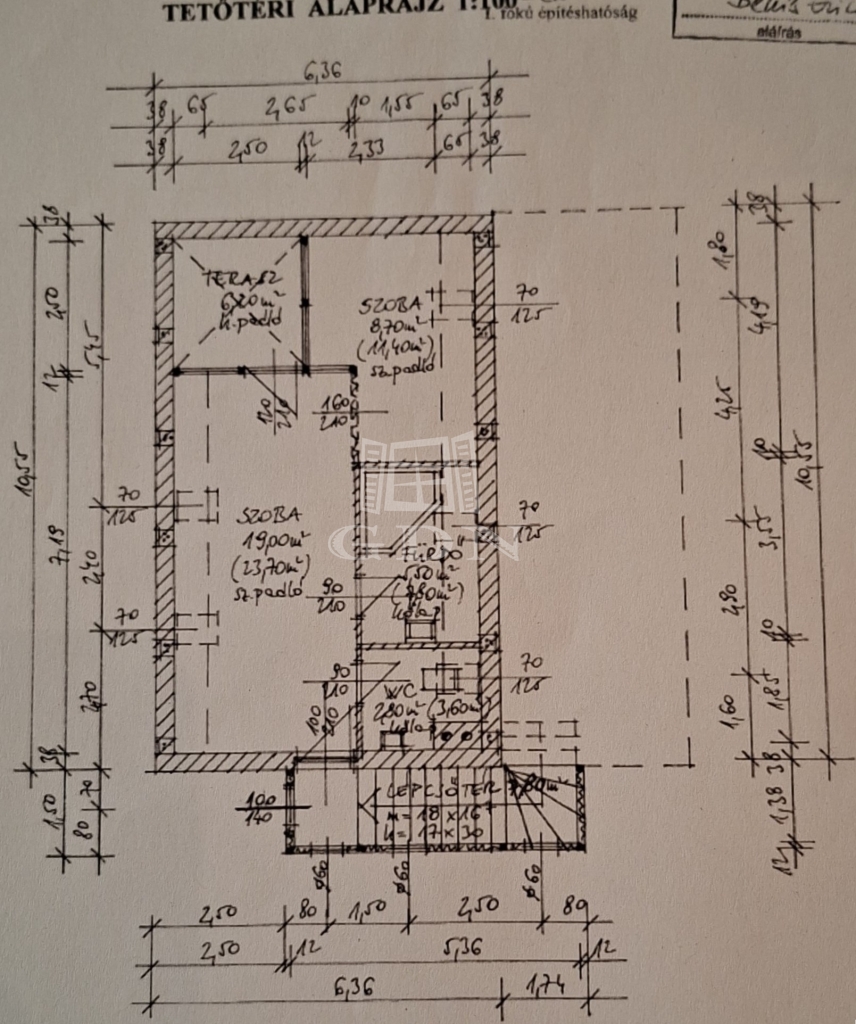 TETŐTÉRI ALAPRAJZ 1:100
I. fokú építéshatóság
aláírás
6,36
38 65 2,65 10 1,55 65 38
38 2,50 12 2,33 65 38
TERASZ
6,20 m²
k.padló
SZOBA
8,70 m²
(11,40 m²)
sz.padló
70
125
120
210
160
210
SZOBA
19,00 m²
(23,70 m²)
sz.padló
70
125
70
125
GDN
FÜRDŐ
5,50 m²
70
125
90
210
90
210
100
210
WC
2,80 m² (3,60 m²)
70
125
LÉPCSŐTÉR
m=18×16
h=17×30
100
140
ø60
ø60
ø60
38
2,50
12
7,19
38
1,50
10,55
5,45
2,40
2,70
70
80
1,80
4,25
2,90
1,60
38
4,19
10
3,55
10
1,85
38
1,38
12
10,55
2,50 80 1,50 2,50 80
2,50 12 5,36 12
6,36 1,74